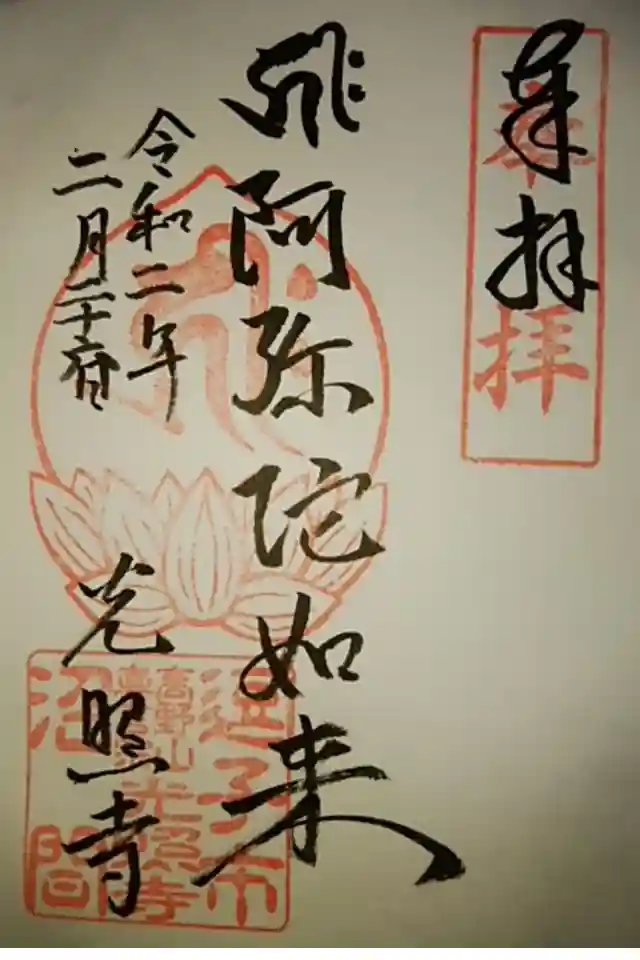 奉拝
奉拝
𑖮𑖿𑖨𑖱𑖾 阿弥陀如来
令和二年
二月二十
光照寺
逗子市
高野山
光照寺
沼間